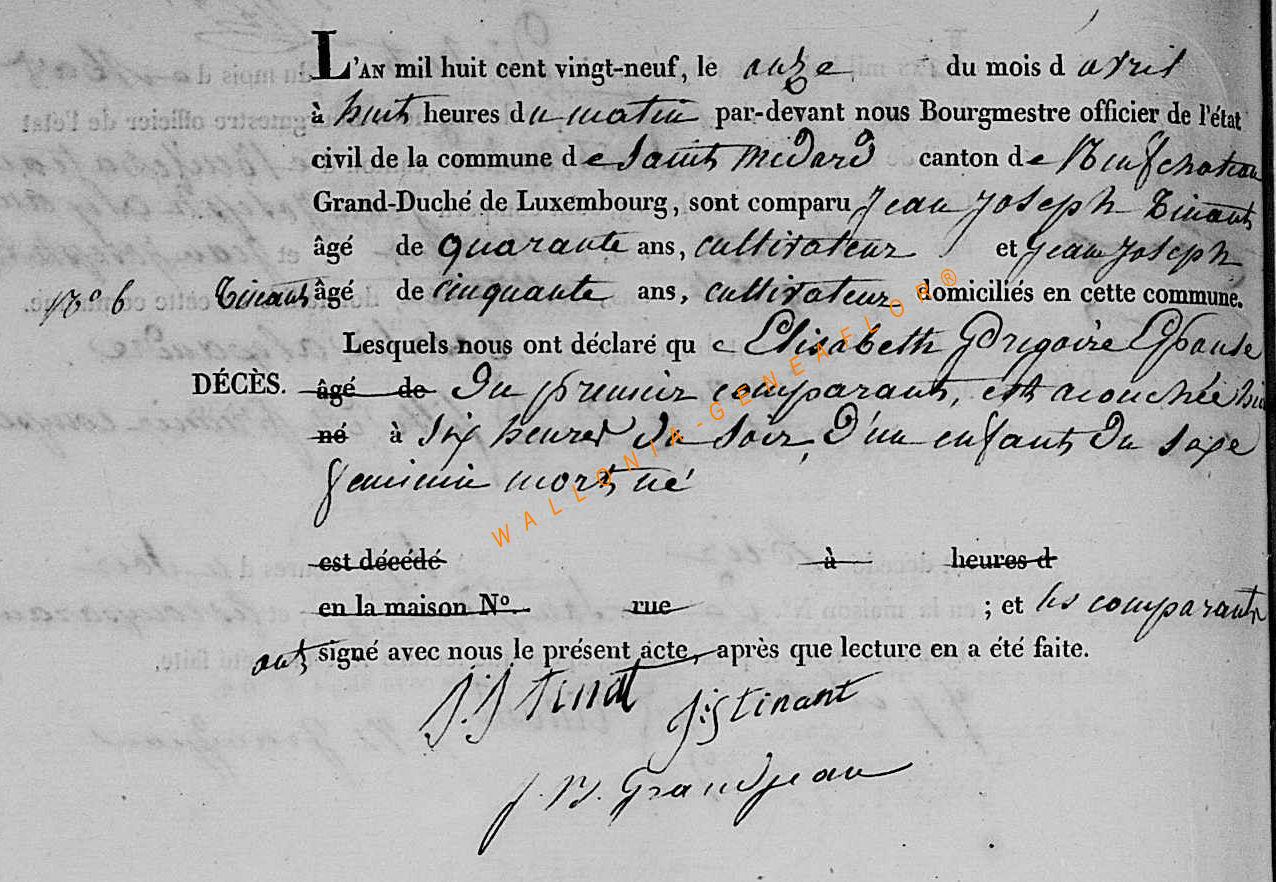 L'AN mil huit cent vingt-neuf, le onze du mois d avril
à huit heures du matin par-devant nous Bourgmestre officier de l'état
civil de la commune de Saint Médard canton de Neufchateau
Grand-Duché de Luxembourg, sont comparu Jean Joseph Tinant
âgé de quarante ans, cultivateur et jean joseph
N° 6 Tinant âgé de cinquante ans, cultivateur domiciliés en cette commune.
Lesquels nous ont déclaré que Elisabeth Grégoire Epouse
DÉCÈS. âgé de du premier comparant, est accouchée hier
né à six heures du soir, d'un enfant du sexe
feminin mort né
est décédé à heures d
en la maison N° rue ; et les comparants
ont signé avec nous le présent acte, après que lecture en a été faite.
J:J Tinat J:J Tinant
J. B. Grandjean
WALLONIA-GENEAFLOR®